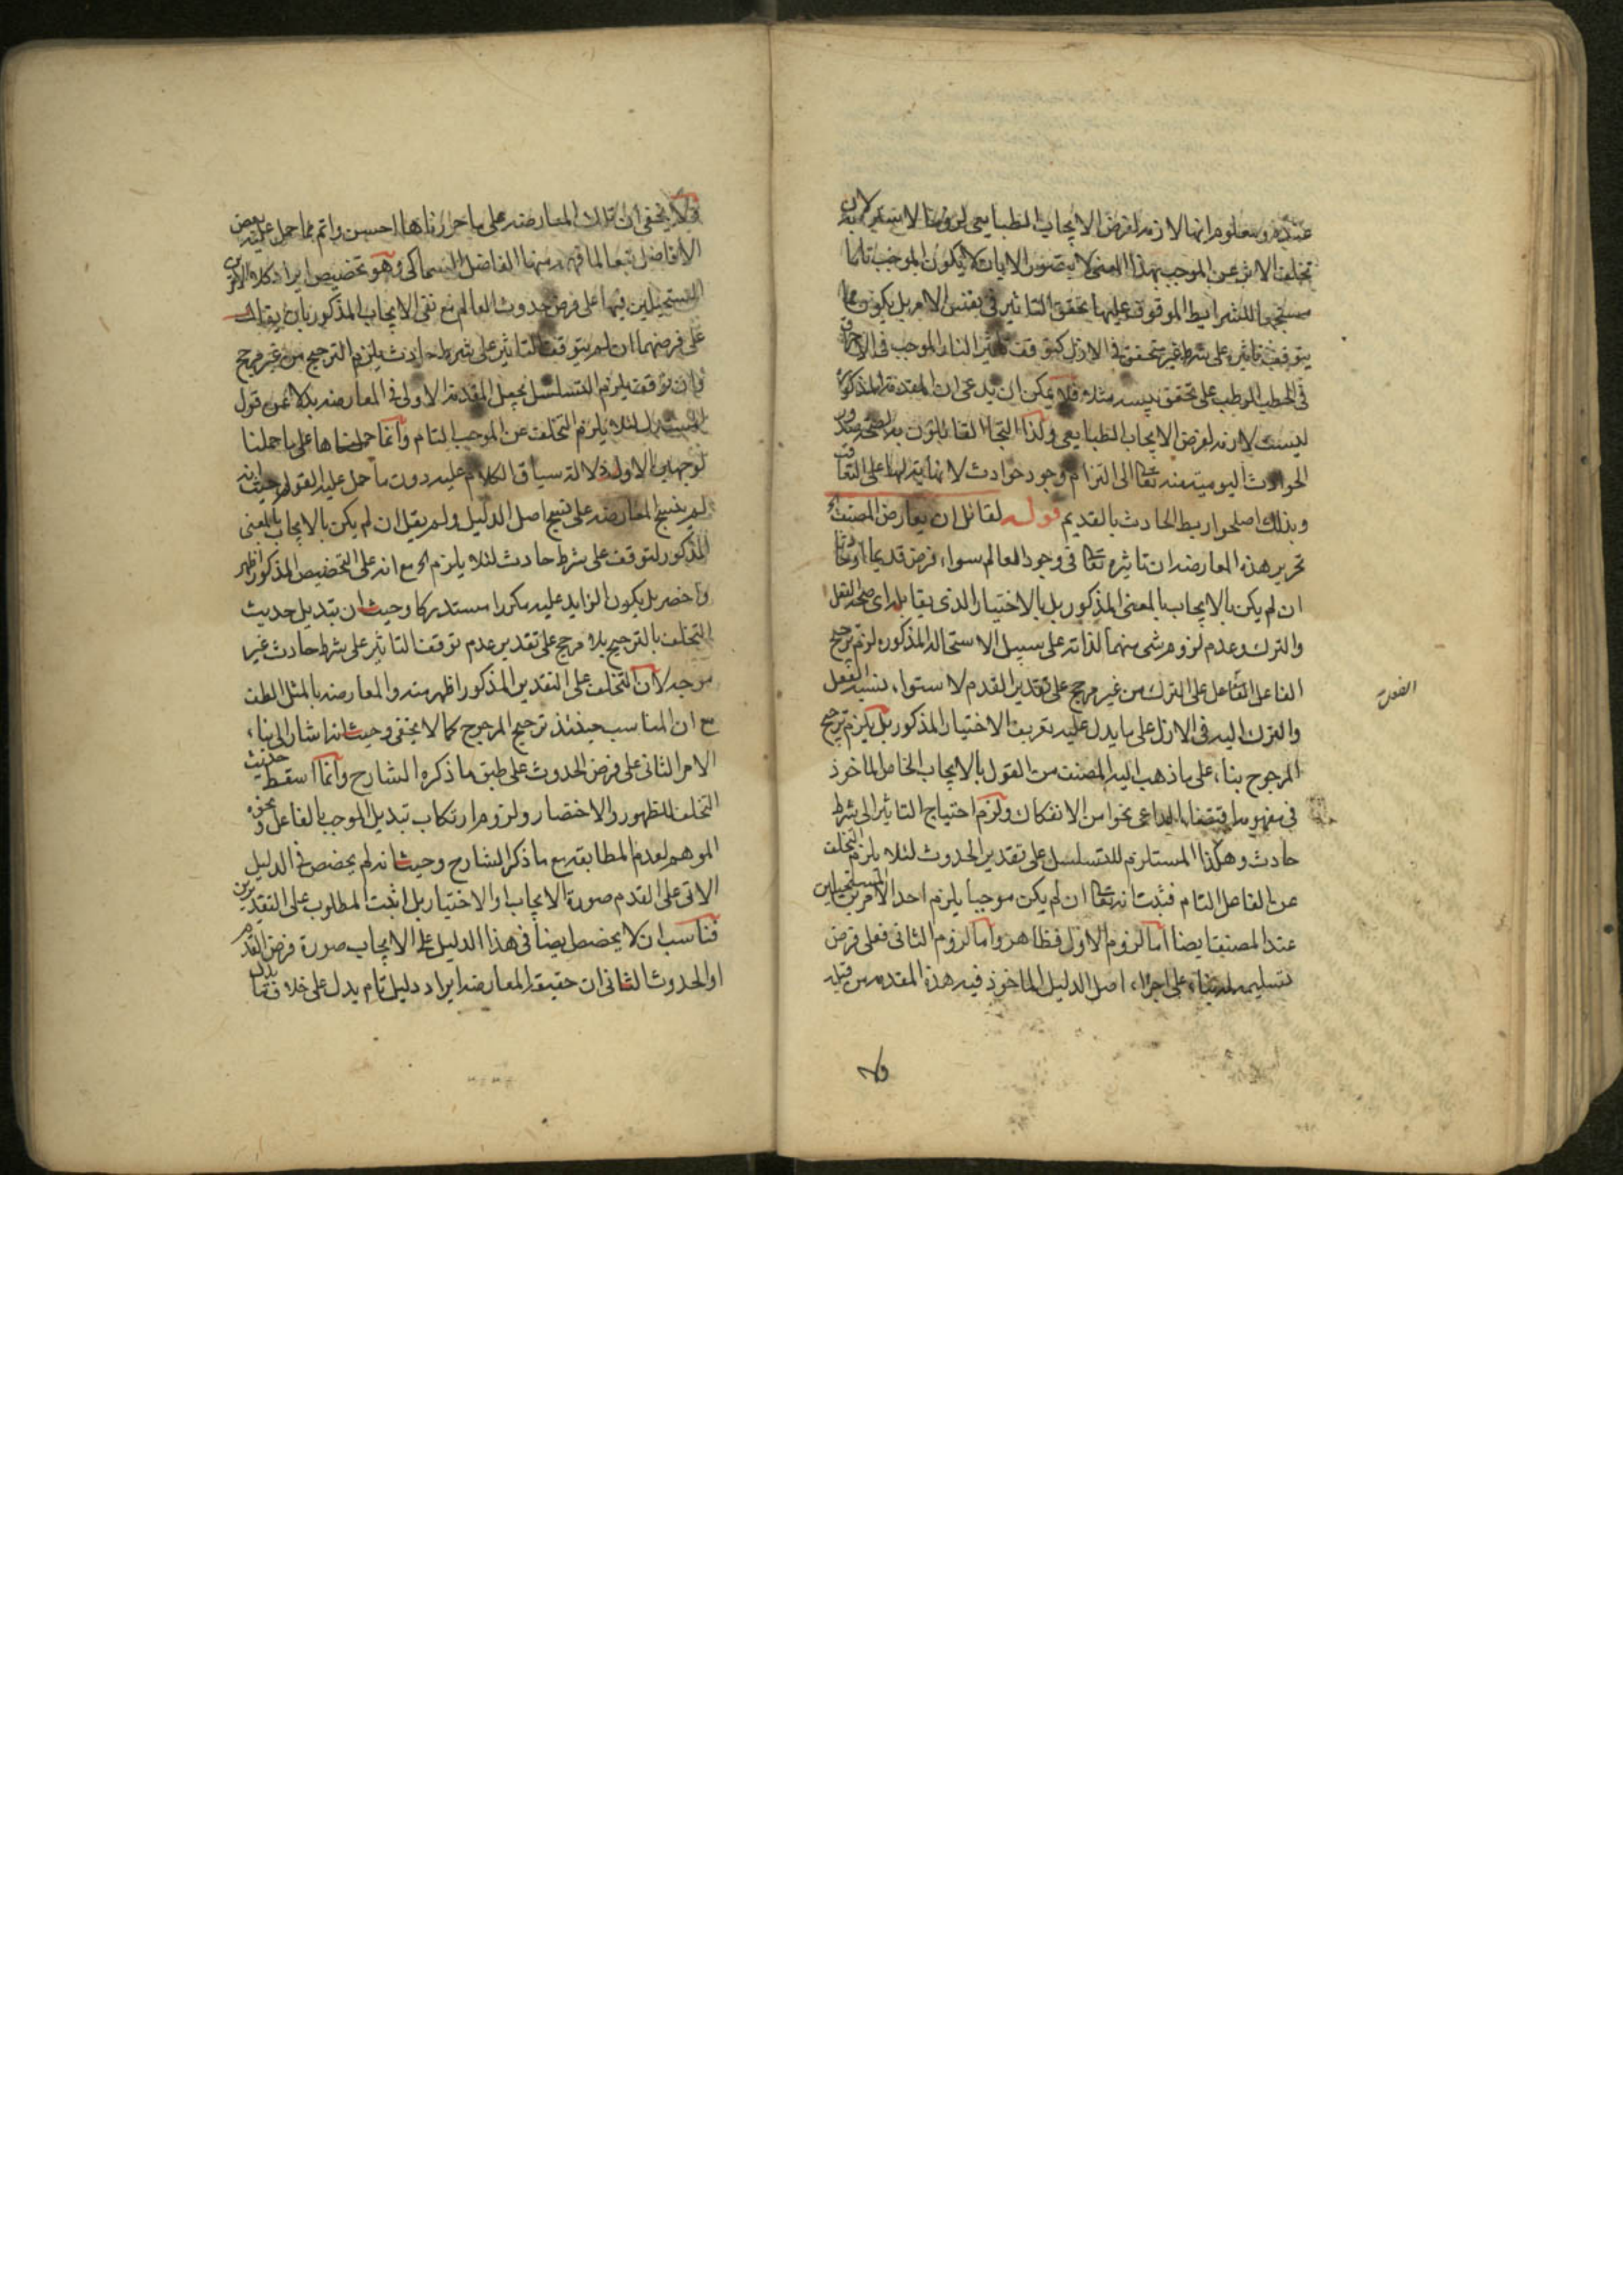 عندهم ومعلوم انها لازمة لفرض الايجاب الطبايعى لزوما لان
تخلف الاثر عن الموجب بهذا المعنى لا يتصور الا بان لا يكون الموجب تاما
مستجمعا للشرايط الموقوف عليها تحقق التاثير فى نفس الامر بل يكون مما
يتوقف تاثيره على شرط غير متحقق فى الازل كتوقف تاثير النار الموجب فى الاحراق
فى الحطب الرطب على تحقق يبسه مثلا فلا يمكن ان يدعى ان المقدمة المذكورة
ليست لازمة لفرض الايجاب الطبايعى ولذا التجا القائلون به لصحة صدور
الحوادث اليومية منه تعالى الى التزام وجود حوادث لا نهاية لها على التعاقب
وبذلك اصلحوا ربط الحادث بالقديم قوله لقائل ان يعارض المصنف
تحرير هذه المعارضة ان تاثيره تعالى فى وجود العالم سواء فرض قديما او حادثا
ان لم يكن بالايجاب بالمعنى المذكور بل بالاختيار الذى يقابله اى صحة الفعل
والترك وعدم لزوم شى منهما لذاته على سبيل الاستحالة المذكورة لزم ترجيح
الفاعل الفاعل على الترك من غير مرجح على تقدير القدم لاستواء نسبة الفعل
والترك اليه فى الازل على ما يدل عليه تعريف الاختيار المذكور بل يلزم ترجيح
المرجوح بناء على ما ذهب اليه المصنف من القول بالايجاب الخاص الماخوذ
فى مفهومه اقتضاء الداعى نحوا من الانفكاك ولزم احتياج التاثير الى شرط
حادث وهكذا المستلزم للتسلسل على تقدير الحدوث لئلا يلزم التخلف
عن الفاعل التام فثبت انه تعالى ان لم يكن موجبا يلزم احد الامرين المستحيلين
عند المصنف ايضا اما لزوم الاول فظاهر واما لزوم الثانى فعلى فرض
تسليمه بناء على اجزاء اصل الدليل الماخوذ فيه هذه المقدمة من قبله
فلا يخفى ان تلك المعارضة على ما حررناها احسن واتم مما حمل عليه بعض
الافاضل تبعا لما فهمه منها الفاضل السماكى وهو تخصيص ايراد كلا الامرين
المستحيلين فيها على فرض حدوث العالم مع نفى الايجاب المذكور بان يقال
على فرضهما ان لم يتوقف التاثير على شرط حادث يلزم الترجيح من غير مرجح
وان توقف يلزم التسلسل بجعل المقدمة الاولى فى المعارضة بدلا عن قول
المستدل لئلا يلزم التخلف عن الموجب التام وانما حملناها على ما حملنا
لوجهين الاول دلالة سياق الكلام عليه دون ما حمل عليه القول حيث انه
لم ينسج المعارضة على نسج اصل الدليل ولم يقل ان لم يكن بالايجاب بالمعنى
المذكور لتوقف على شرط حادث لئلا يلزم الخ مع انه على التخصيص المذكور اظهر
واخصر بل يكون الزايد عليه مكررا مستدركا وحيث ان تبديل حديث
التخلف بالترجيح بلا مرجح على تقدير عدم توقف التاثير على شرط حادث غير
موجه لان التخلف على التقدير المذكور اظهر منه والمعارضة بالمثل الطف
مع ان المناسب حينئذ ترجيح المرجوح كما لا يخفى وحيث انه اشار الى بناء
الامر الثانى على فرض الحدوث على طبق ما ذكره الشارح وانما اسقط حديث
التخلف للظهور والاختصار ولزوم ارتكاب تبديل الموجب بالفاعل ونحوه
الموهم لعدم المطابقة مع ما ذكر الشارح وحيث انه لم يخصص فى الدليل
الاتى على القدم صورة الايجاب او الاختيار بل اثبت المطلوب على التقديرين
فناسب ان لا يخصص ايضا فى هذا الدليل على الايجاب صورة فرض القدم
او الحدوث الثانى ان حقيقة المعارضة ايراد دليل تام يدل على خلاف ما